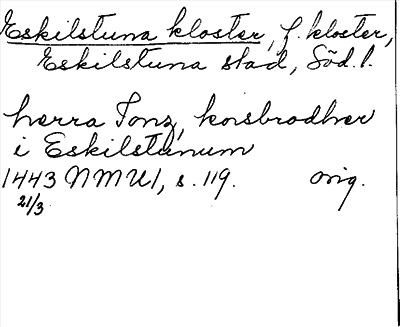 Eskilstuna kloster, f. kloster,
Eskilstuna stad, Söd. l.
herra Jonz, korsbrodhrer
i Eskilstunum
1443 NMU1, s. 119. orig.
21/3